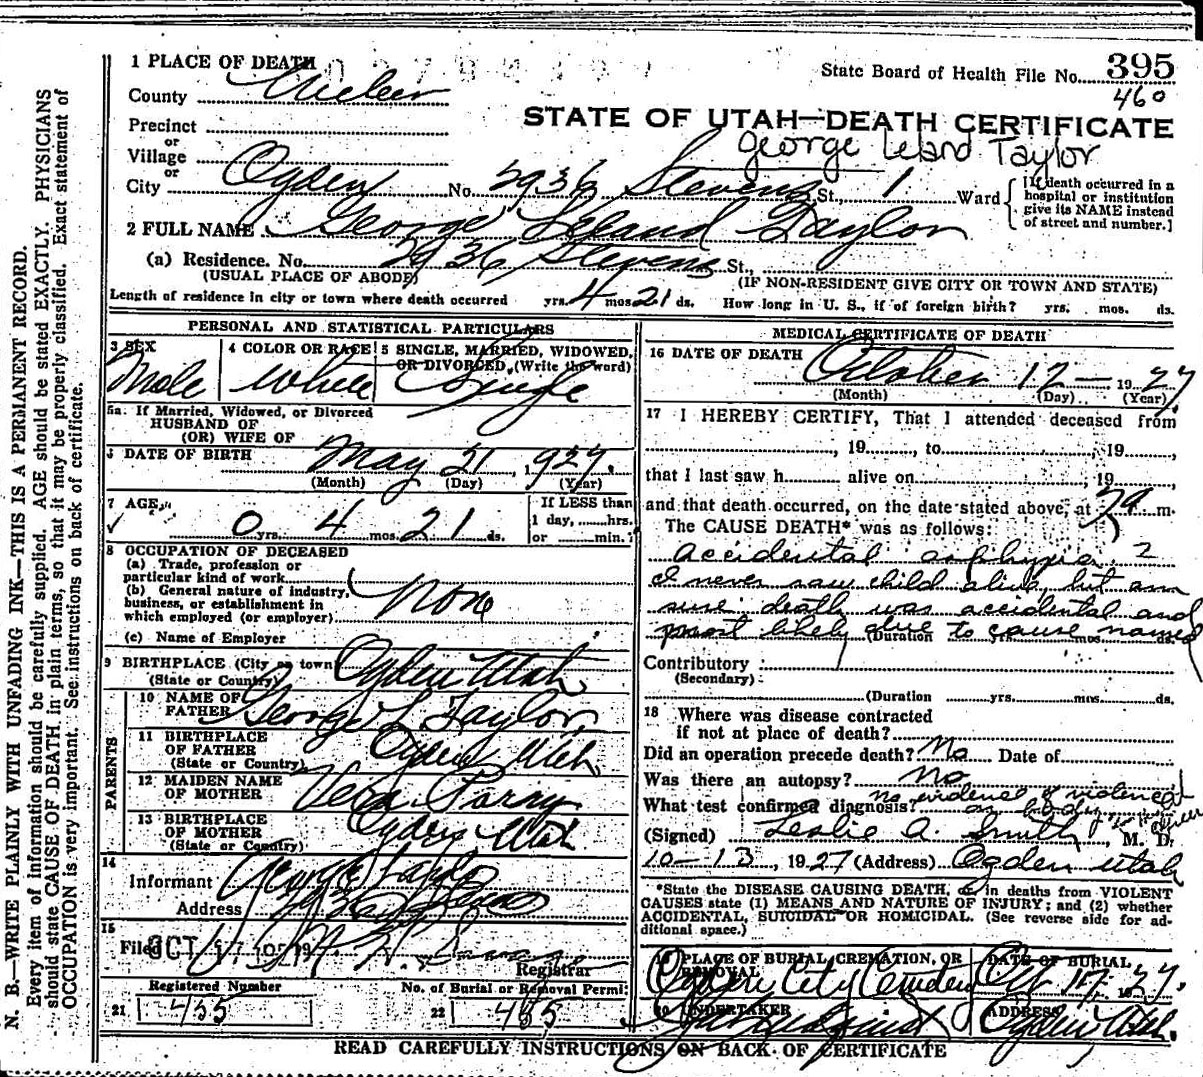 1 PLACE OF DEATH
County Weber
State Board of Health File No. 395
460
STATE OF UTAH—DEATH CERTIFICATE
George Leland Taylor
Precinct
or
Village
or
City Ogden No. 2936 Stevens St., 1 Ward
[If death occurred in a
hospital or institution
give its NAME instead
of street and number.]
2 FULL NAME George Leland Taylor
(a) Residence. No. 2936 Stevens St.,
(USUAL PLACE OF ABODE) (IF NON-RESIDENT GIVE CITY OR TOWN AND STATE)
Length of residence in city or town where death occurred yrs. 4 mos. 21 ds. How long in U. S., if of foreign birth? yrs. mos. ds.
PERSONAL AND STATISTICAL PARTICULARS
3 SEX 4 COLOR OR RACE 5 SINGLE, MARRIED, WIDOWED,
OR DIVORCED, (Write the word)
Male White Single
5a If Married, Widowed, or Divorced
HUSBAND OF
(OR) WIFE OF
6 DATE OF BIRTH May 21, 1927.
(Month) (Day) (Year)
7 AGE If LESS than
0 yrs. 4 mos. 21 ds. 1 day, hrs.
or min.?
8 OCCUPATION OF DECEASED
(a) Trade, profession or
particular kind of work
(b) General nature of industry,
business, or establishment in
which employed (or employer) None
(c) Name of Employer
9 BIRTHPLACE (City or town)
(State or Country) Ogden Utah
PARENTS
10 NAME OF
FATHER George L Taylor
11 BIRTHPLACE
OF FATHER
(State or Country) Ogden Utah
12 MAIDEN NAME
OF MOTHER Vera Parry
13 BIRTHPLACE
OF MOTHER
(State or Country) Ogden Utah
14
Informant George Taylor
Address 2936
15
Filed OCT 17 Registrar
Registered Number No. of Burial or Removal Permit
21 455 22 455
MEDICAL CERTIFICATE OF DEATH
16 DATE OF DEATH October 12— 1927
(Month) (Day) (Year)
17 I HEREBY CERTIFY, That I attended deceased from
, 19, to , 19,
that I last saw h alive on , 19,
and that death occurred, on the date stated above, at 7 a m.
The CAUSE DEATH* was as follows:
accidental asphyxia 2
I never saw child alive but am
sure death was accidental and
most likely due to cause named
(Duration yrs. mos.
Contributory
(Secondary)
(Duration yrs. mos. ds.
18 Where was disease contracted
if not at place of death?
Did an operation precede death? No Date of
Was there an autopsy? No
What test confirmed diagnosis? No evidence of violence
on body
(Signed) Leslie A. Smith, M. D.
10—13, 1927 (Address) Ogden Utah
*State the DISEASE CAUSING DEATH, or, in deaths from VIOLENT
CAUSES state (1) MEANS AND NATURE OF INJURY; and (2) whether
ACCIDENTAL, SUICIDAL OR HOMICIDAL. (See reverse side for ad-
ditional space.)
19 PLACE OF BURIAL, CREMATION, OR
REMOVAL DATE OF BURIAL
Ogden City Cemetery Oct 17, 1927.
20 UNDERTAKER ADDRESS
Ogden, Utah.
READ CAREFULLY INSTRUCTIONS ON BACK OF CERTIFICATE
N. B.—WRITE PLAINLY WITH UNFADING INK—THIS IS A PERMANENT RECORD.
Every item of information should be carefully supplied. AGE should be stated EXACTLY. PHYSICIANS
should state CAUSE OF DEATH in plain terms, so that it may be properly classified. Exact statement of
OCCUPATION is very important. See instructions on back of certificate.